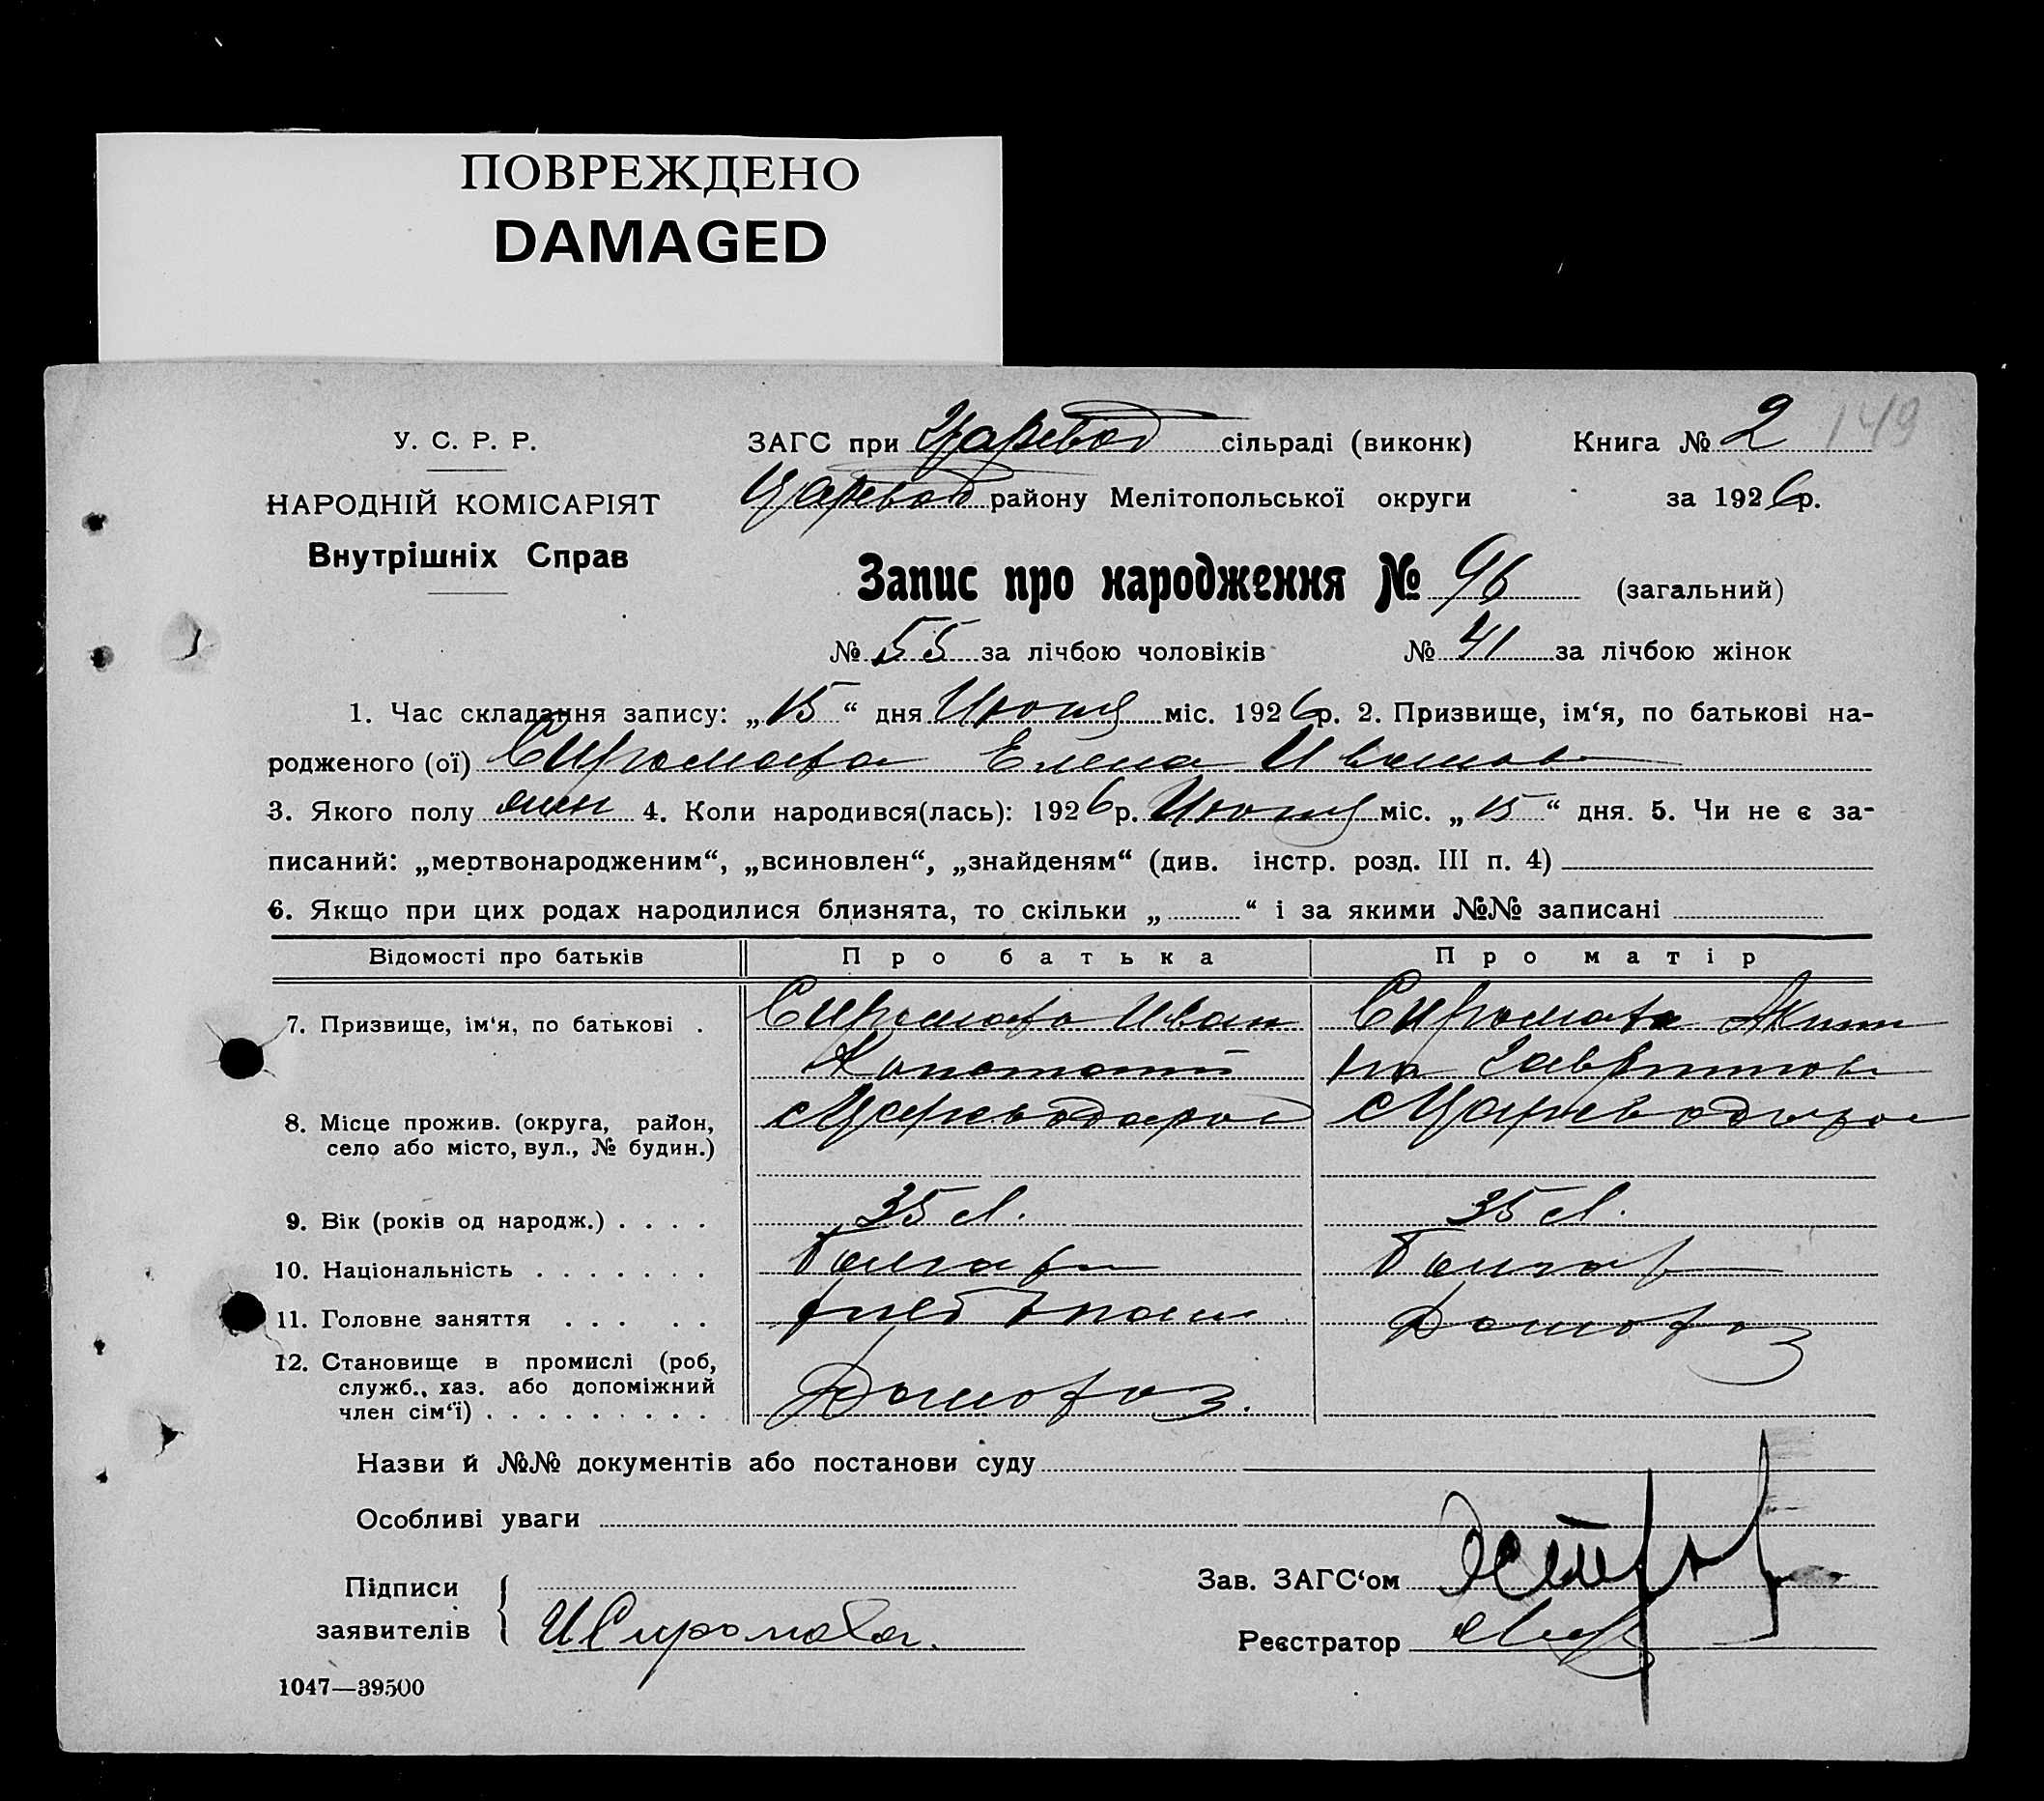 ПОВРЕЖДЕНО
DAMAGED
149
У. С. Р. Р. ЗАГС при Царевод сільраді (виконк) Книга № 2
НАРОДНІЙ КОМІСАРІЯТ Царевод району Мелітопольської округи за 1926р.
Внутрішніх Справ
Запис про народження № 96 (загальний)
№ 55 за лічбою чоловіків № 41 за лічбою жінок
1. Час складання запису: „15“ дня Июня міс. 1926р. 2. Призвище, ім‘я, по батькові на-
родженого (ої) Сиромаха Елена Иванов
3. Якого полу жен 4. Коли народився(лась): 1926р. Июня міс. „15“ дня. 5. Чи не є за-
писаний: „мертвонародженим“, „всиновлен“, „знайденям“ (див. інстр. розд. III п. 4)
6. Якщо при цих родах народилися близнята, то скільки „ “ і за якими №№ записані
Відомості про батьків Про батька Про матір
7. Призвище, ім‘я, по батькові . Сиромаха Иван Сиромаха
8. Місце прожив. (округа, район, с Цареводаров с Цареводаров
село або місто, вул., № будин.)
9. Вік (років од народж.) . . . . 35 л. 35 л.
10. Національність . . . . . . . Болгар Болгар
11. Головне заняття . . . . . хлебопаш Домохоз
12. Становище в промислі (роб,
служб., хаз. або допоміжний
член сім‘ї) . . . . . . . . . Домохоз.
Назви й №№ документів або постанови суду
Особливі уваги
Підписи Зав. ЗАГС‘ом
заявителів И Сиромаха. Реєстратор
1047—39500